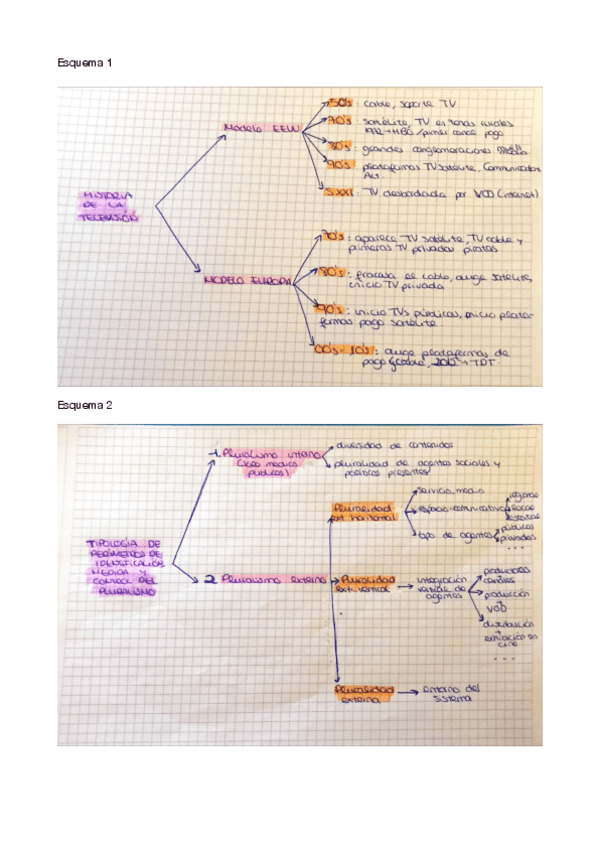 Esquema 1
HISTORIA
DE LA
TELEVISIÓN
Modelo EEUU
50's: cable, soporte TV
70's satélite, TV en zonas rurales
HBO / primer canal pago
80's: grandes conglomeraciones
90's: plataformas TV satélite, Communications
Act.
S.XXI: TV desbordada por VOD (internet)
MODELO EUROPA
70's: aparece TV satélite, TV cable y
primeras TV privadas piratas
80's: fracasa el cable, auge satélite,
inicio TV privada
90's: inicio TVs públicas, inicio plata-
formas pago satélite
00's - 10's: auge plataformas de
pago (cable, 2012 → TDT
Esquema 2
TIPOLOGÍA DE
PERÍMETROS DE
IDENTIFICACIÓN
MEDIDA Y
CONTROL DEL
PLURALISMO
1. Pluralismo interno
(solo medios
públicos)
diversidad de contenidos
pluralidad de agentes sociales y
políticos presentes
2. Pluralismo externo
Pluralidad
ext. horizontal
servicio, medio
espacio comunicativo
regional
local
estatal
tipo de agentes
públicos
privados
...
Pluralidad
ext. vertical
integración
vertical de
agentes
productores
canales
producción
+
VOD
distribución
+
exhibición en
cine
...
Pluralidad
externa
entorno del
sistema